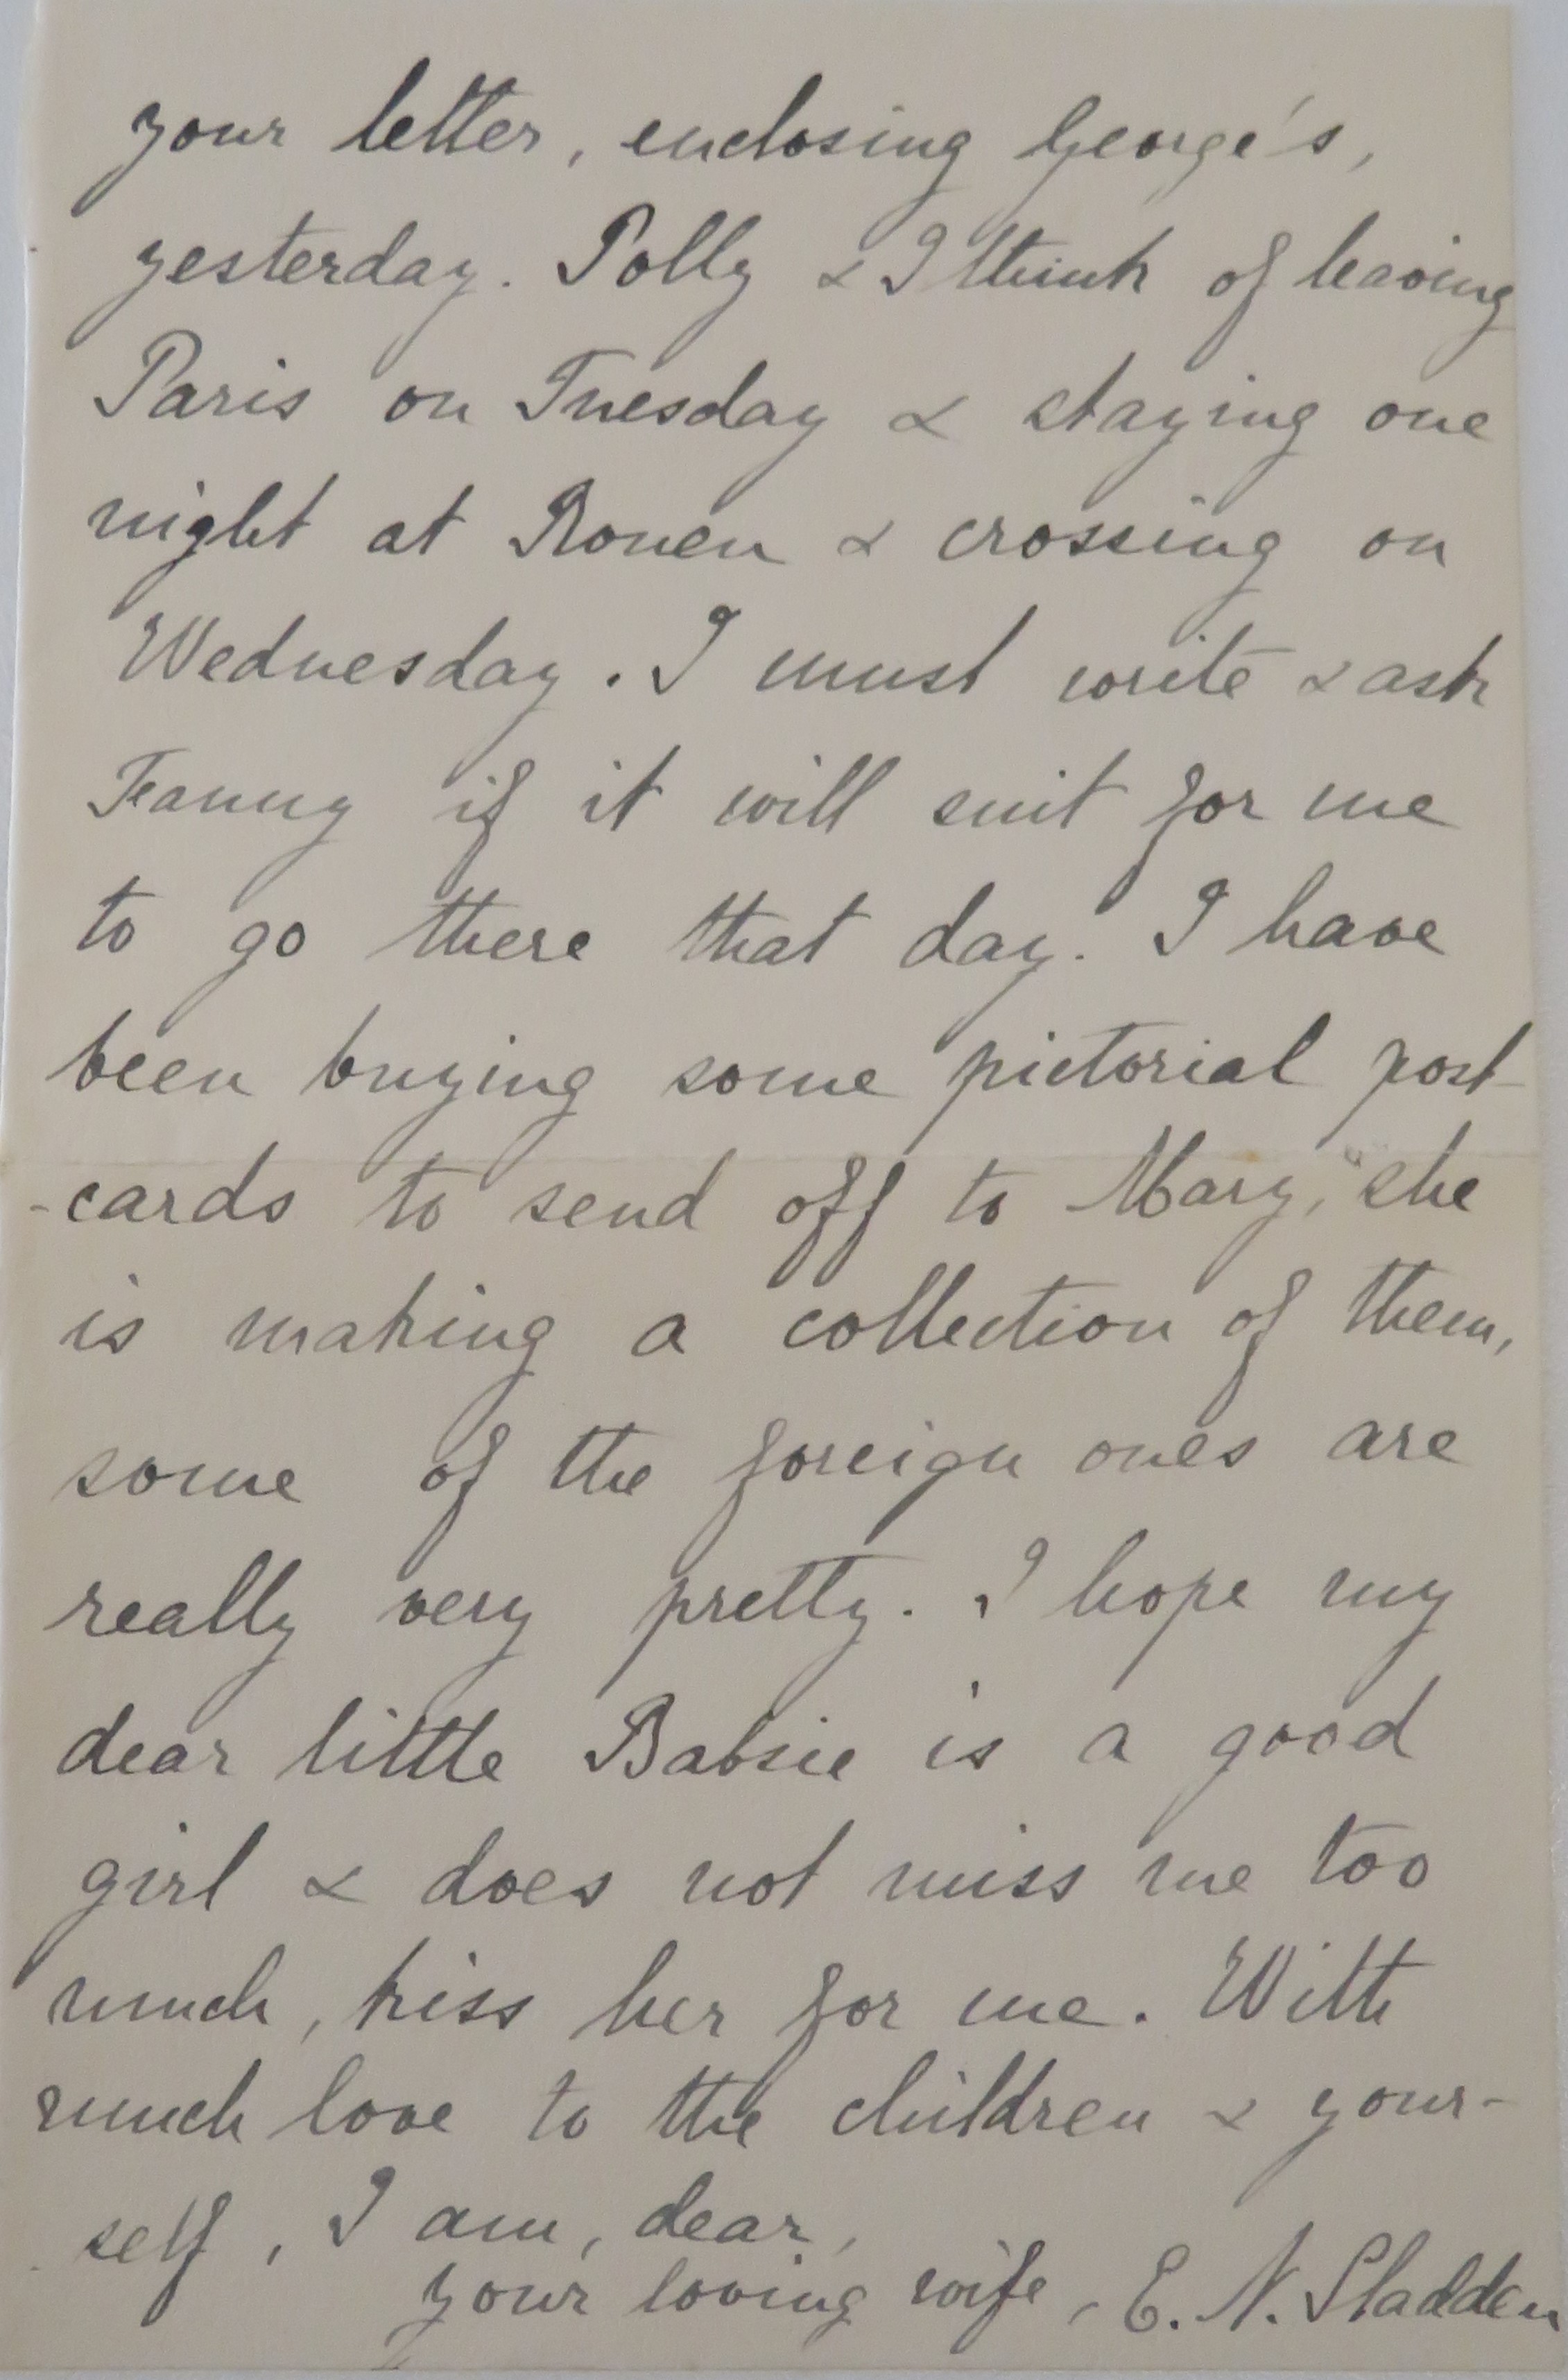 your letter, enclosing George's,
yesterday. Polly & I think of leaving
Paris on Tuesday & staying one
night at Rouen & crossing on
Wednesday. I must write & ask
Fanny if it will suit for me
to go there that day. I have
been buying some pictorial post
-cards to send off to Mary, she
is making a collection of them,
some of the foreign ones are
really very pretty. I hope my
dear little Babsie is a good
girl & does not miss me too
much, kiss her for me. With
much love to the children & your-
self, I am, dear,
your loving wife, E. N. Sladden